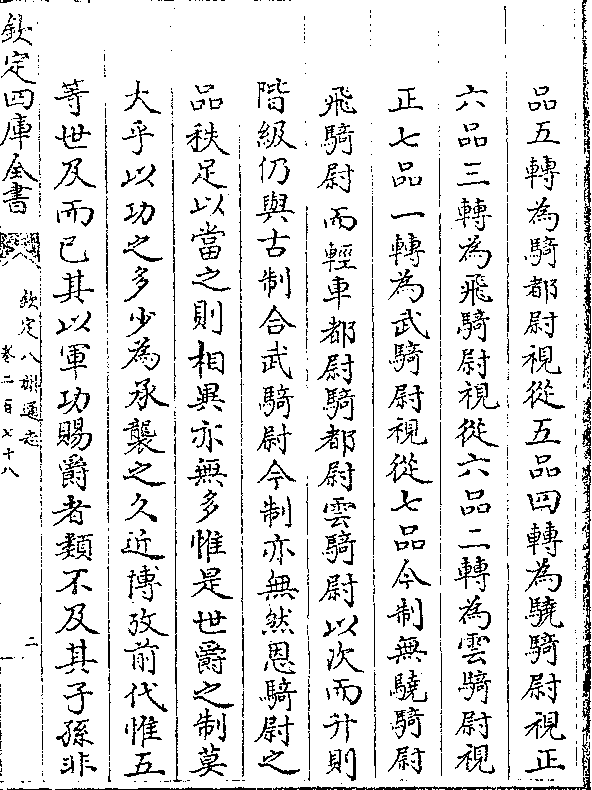 品五轉為騎都尉視從五品四轉為驍騎尉視正
六品三轉為飛騎尉視從六品二轉為雲騎尉視
正七品一轉為武騎尉視從七品今制無驍騎尉
飛騎尉而輕車都尉騎都尉雲騎尉以次而升則
階級仍與古制合武騎尉今制亦無然恩騎尉之
品秩足以當之則相異亦無多惟是世爵之制莫
大乎以功之多少為承襲之久近博攷前代惟五
等世及而已其以軍功賜爵者類不及其子孫非
欽定四庫全書
欽定八旗通志
卷二百七十八
二